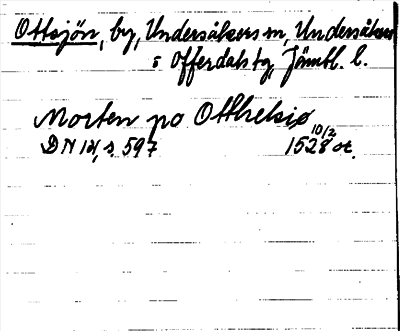 Ottsjön, by, Undersåkers sn, Undersåkers
o Offerdals tg, Jämtl. l.
Morten po Otthelsiø
DN 14, s 597 10/2 1528 or.